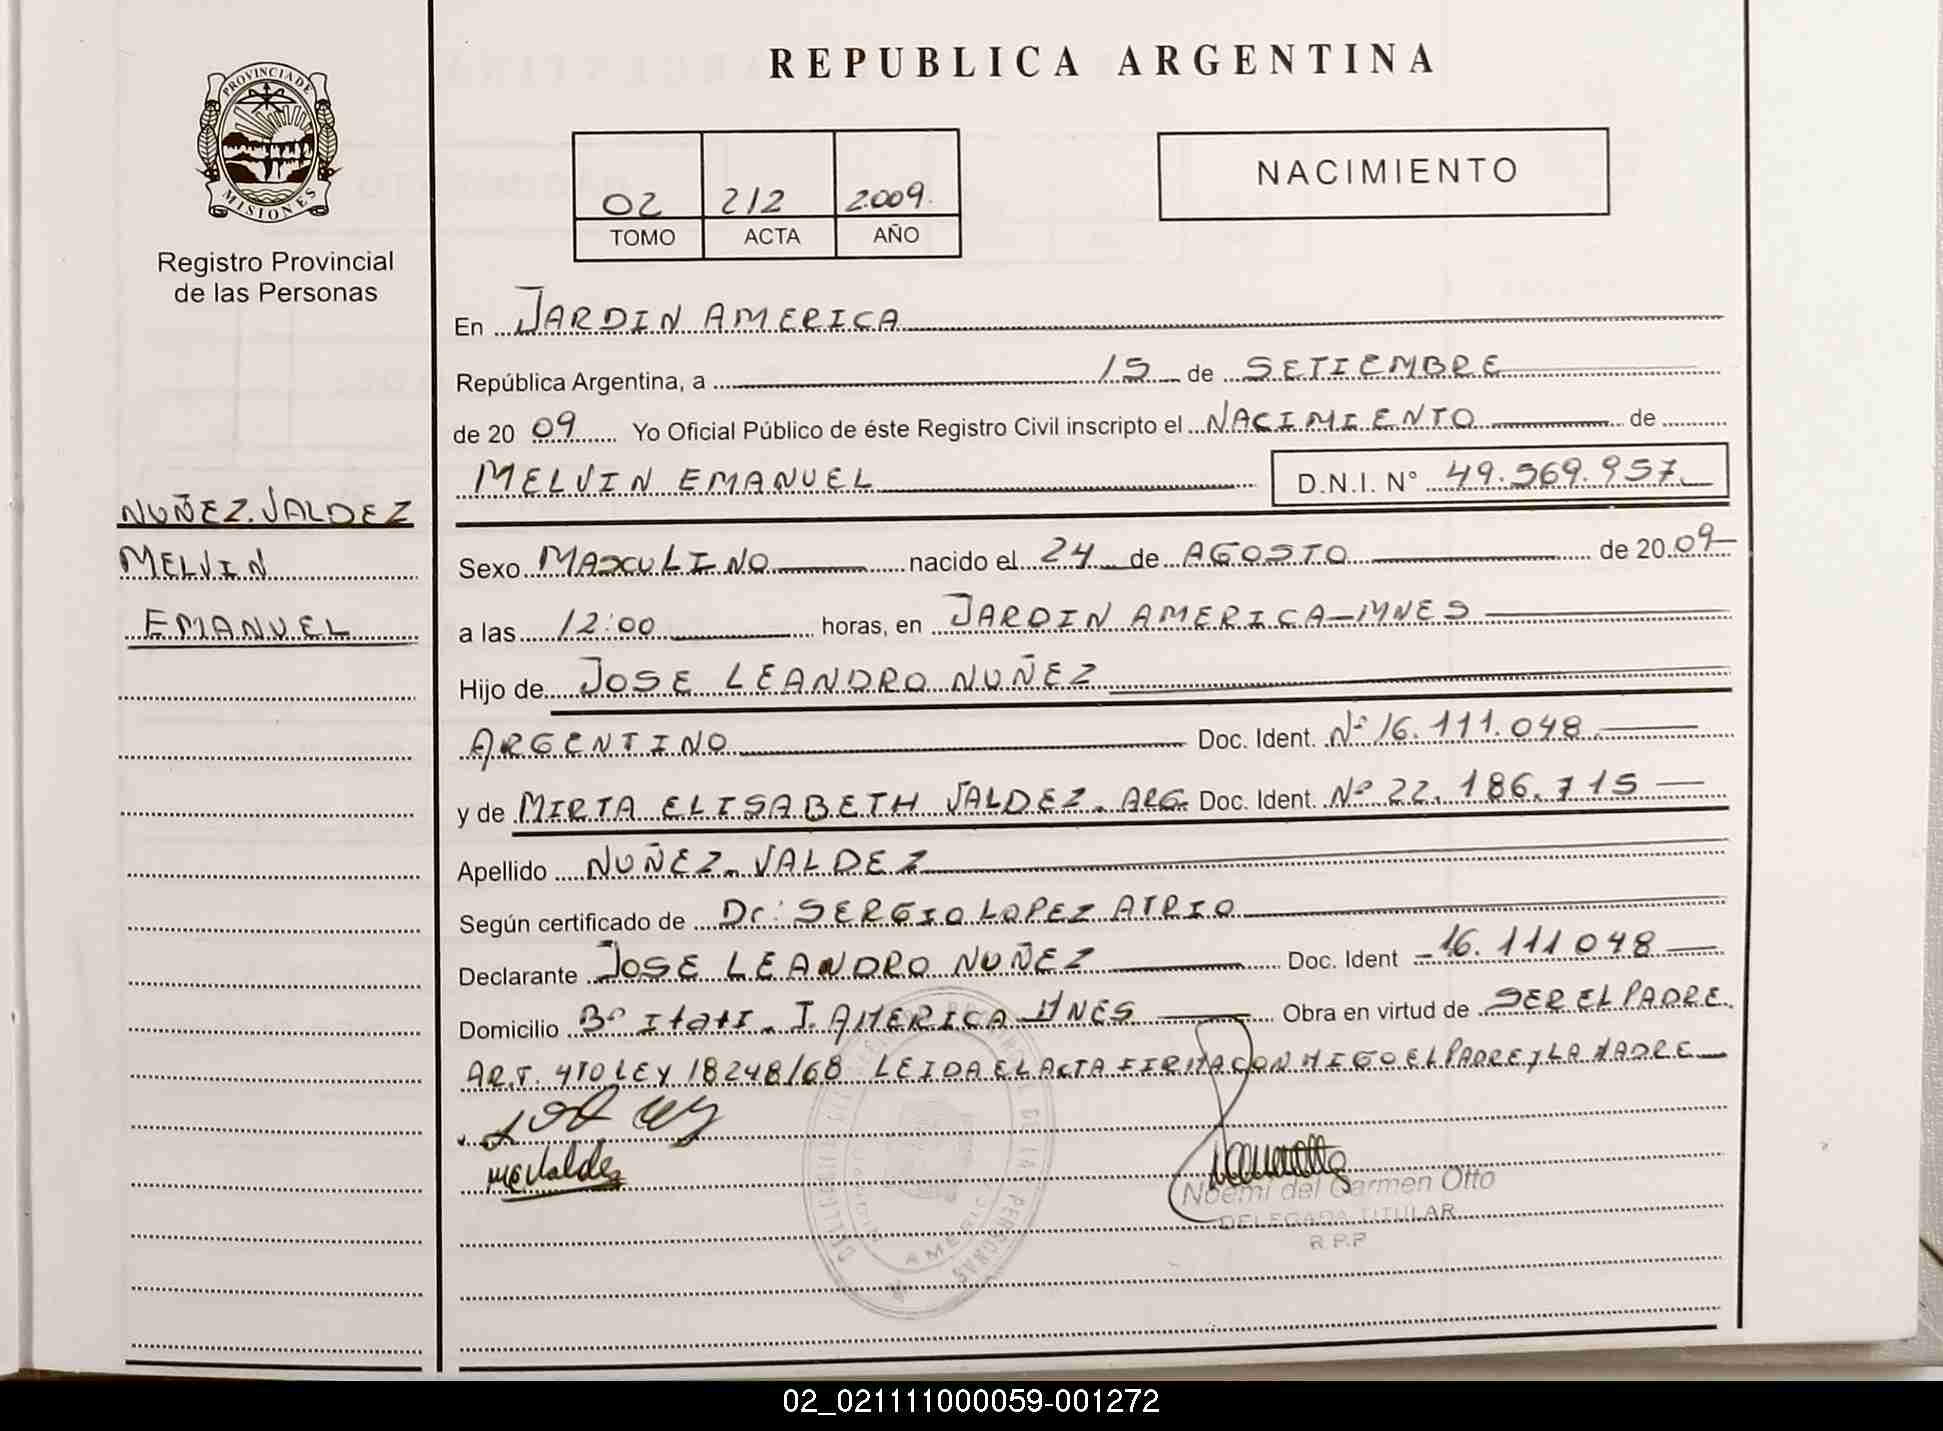 PROVINCIA DE
MISIONES
Registro Provincial
de las Personas
NUÑEZ. VALDEZ
MELVIN
EMANUEL
REPUBLICA ARGENTINA
02 212 2009.
TOMO ACTA AÑO
NACIMIENTO
En JARDIN AMERICA
República Argentina, a 15 de SETIEMBRE
de 20 09 Yo Oficial Público de éste Registro Civil inscripto el NACIMIENTO de
MELVIN EMANUEL D.N.I. N° 49.569.957.
Sexo MASCULINO nacido el 24 de AGOSTO de 20 09
a las 12:00 horas, en JARDIN AMERICA-MNES
Hijo de JOSE LEANDRO NUÑEZ
ARGENTINO Doc. Ident. Nº 16.111.048
y de MIRTA ELISABETH VALDEZ. ARG. Doc. Ident. Nº 22.186.715
Apellido NUÑEZ. VALDEZ
Según certificado de Dr: SERGIO LOPEZ ATRIO
Declarante JOSE LEANDRO NUÑEZ Doc. Ident 16.111 048
Domicilio Bº Itati. J. AMERICA MNES Obra en virtud de SER EL PADRE.
ART. 4TO LEY 18248/68 LEIDA EL ACTA FIRMA CON MIGO EL PADRE Y LA MADRE
Noemi del Carmen Otto
DELEGADA TITULAR
R.P.P
02_021111000059-001272